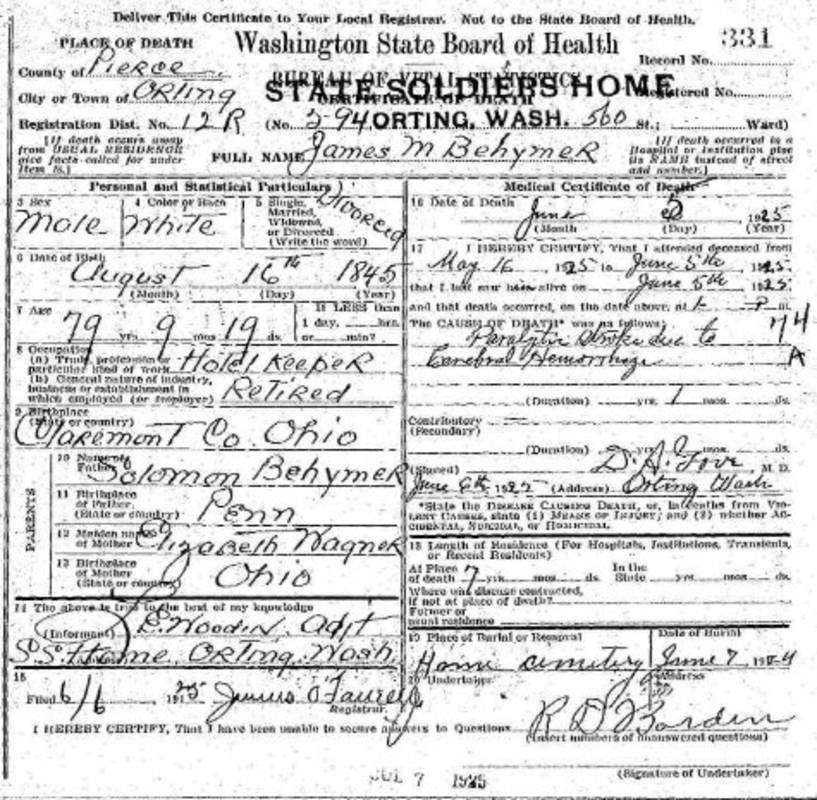 Deliver This Certificate to Your Local Registrar. Not to the State Board of Health.
PLACE OF DEATH
Washington State Board of Health
331
County of Pierce
Record No.
BUREAU OF VITAL STATISTICS
STATE SOLDIERS HOME
City or Town of Orting
CERTIFICATE OF DEATH
Registered No.
Registration Dist. No. 12R (No. ORTING, WASH. St.; Ward)
[If death occurs away from USUAL RESIDENCE give facts called for under Item 18.]
FULL NAME James M Behymer
[If death occurred in a Hospital or Institution give its NAME instead of street and number.]
Personal and Statistical Particulars
3 Sex Male
4 Color or Race White
5 Single, Married, Widowed, or Divorced (Write the word) Divorced
6 Date of Birth August 16th 1845
(Month) (Day) (Year)
7 Age 79 yrs 9 mos 19 ds.
If LESS than 1 day, hrs. or min?
8 Occupation
(a) Trade, profession or particular kind of work Hotel Keeper
(b) General nature of industry, business or establishment in which employed (or employer) Retired
9 Birthplace (State or country) Claremont Co. Ohio
PARENTS
10 Name of Father Solomon Behymer
11 Birthplace of Father (State or country) Penn
12 Maiden name of Mother Elizabeth Wagner
13 Birthplace of Mother (State or country) Ohio
14 The above is true to the best of my knowledge
(Informant) E. Woodin. Adjt
S. S. Home. Orting. Wash.
15
Filed 6/6 1925
Registrar.
Medical Certificate of Death
16 Date of Death June 5 1925
(Month) (Day) (Year)
17 I HEREBY CERTIFY, That I attended deceased from
May 16 1925 to June 5th 1925
that I last saw him alive on June 5th 1925
and that death occurred, on the date above, at P m.
The CAUSE OF DEATH* was as follows: 74
Paralytic Stroke due to
Cerebral Hemorrhage A
(Duration) yrs. 1 mos. ds.
Contributory (Secondary)
(Duration) yrs. mos. ds.
(Signed) M. D.
June 6th (Address) Orting Wash
*State the DISEASE CAUSING DEATH, or, in deaths from VIOLENT CAUSES, state (1) MEANS OF INJURY; and (2) whether ACCIDENTAL, SUICIDAL, or HOMICIDAL.
18 Length of Residence (For Hospitals, Institutions, Transients, or Recent Residents)
At Place of death 7 yrs. mos. ds. In the State yrs. mos. ds.
Where was disease contracted, if not at place of death?
Former or usual residence
19 Place of Burial or Removal
Date of Burial
Home cemetery June 7
20 Undertaker
Address
R D Borden
I HEREBY CERTIFY, That I have been unable to secure answers to Questions
(Insert numbers of unanswered questions)
7 1925
(Signature of Undertaker)